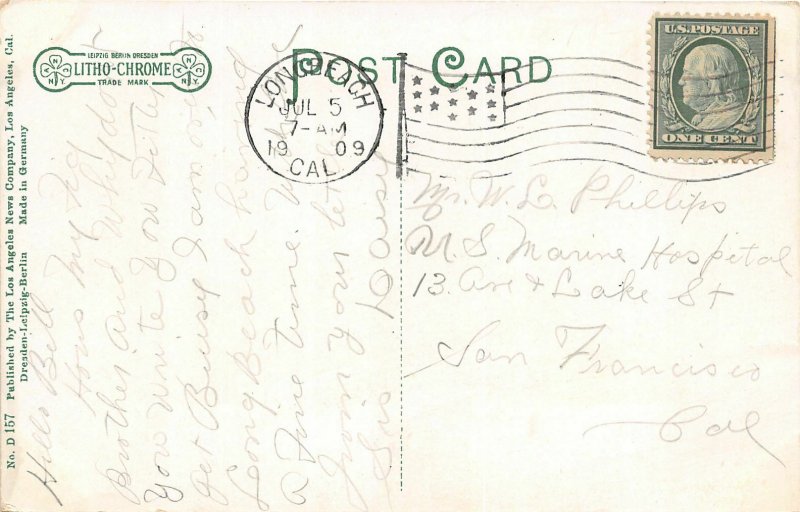 No. D 157 Published by The Los Angeles News Company, Los Angeles, Cal.
Dresden-Leipzig-Berlin Made in Germany
LEIPZIG BERLIN DRESDEN
LITHO-CHROME
TRADE MARK
POST CARD
LONG BEACH
JUL 5
7-AM
1909
CAL.
U.S. POSTAGE
ONE CENT
Hello Bill
Hows my big
Brother and Why dont
You write You
get Buisy I am
Long Beach having
a Fine time.
from your
Sis
Mr. W. L. Phillips
U.S. Marine Hospital
13 Ave & Lake St
San Francisco
Cal